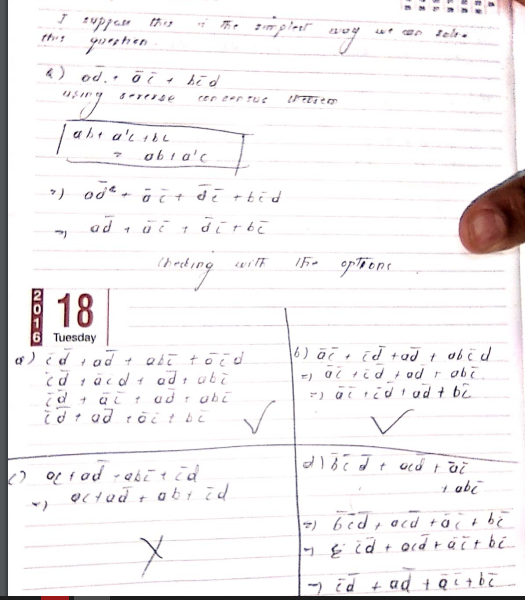 I suppose this is the simplest way we can solve
this question.
Q) ad̄ + ā c̄ + bc̄d
using reverse consensus theorem
ab + a'c + bc
= ab + a'c
=) ad̄ + ā c̄ + d̄ c̄ + bc̄d
=) ad̄ + ā c̄ + d̄ c̄ + bc̄
Checking with the options
2016
18
Tuesday
a) c̄ d̄ + ad̄ + abc̄ + āc̄d
c̄ d̄ + āc̄d + ad̄ + abc̄
c̄ d̄ + āc̄ + ad̄ + abc̄
c̄ d̄ + ad̄ + āc̄ + bc̄
b) āc̄ + c̄d̄ + ad̄ + abc̄d
=) āc̄ + c̄d̄ + ad̄ + abc̄
=) āc̄ + c̄d̄ + ad̄ + bc̄
c) ac + ad̄ + abc̄ + c̄d
=) ac + ad̄ + ab + c̄d
d) b̄c̄d̄ + acd̄ + āc̄
+ abc̄
=) b̄c̄d̄ + acd̄ + āc̄ + bc̄
=) c̄d̄ + acd̄ + āc̄ + bc̄
=) c̄d̄ + ad̄ + āc̄ + bc̄